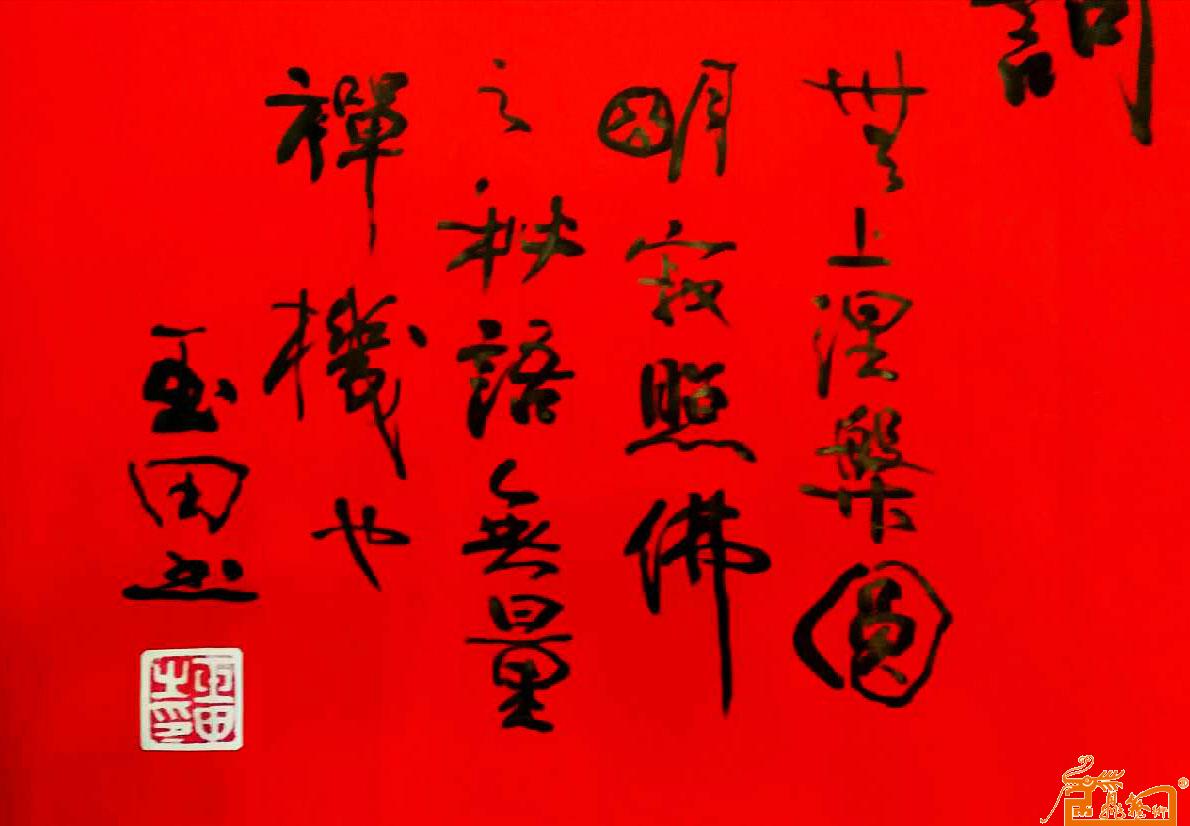 詞
無上涅槃圓
明寂照佛
之秘語無量
禪機也
玉田書